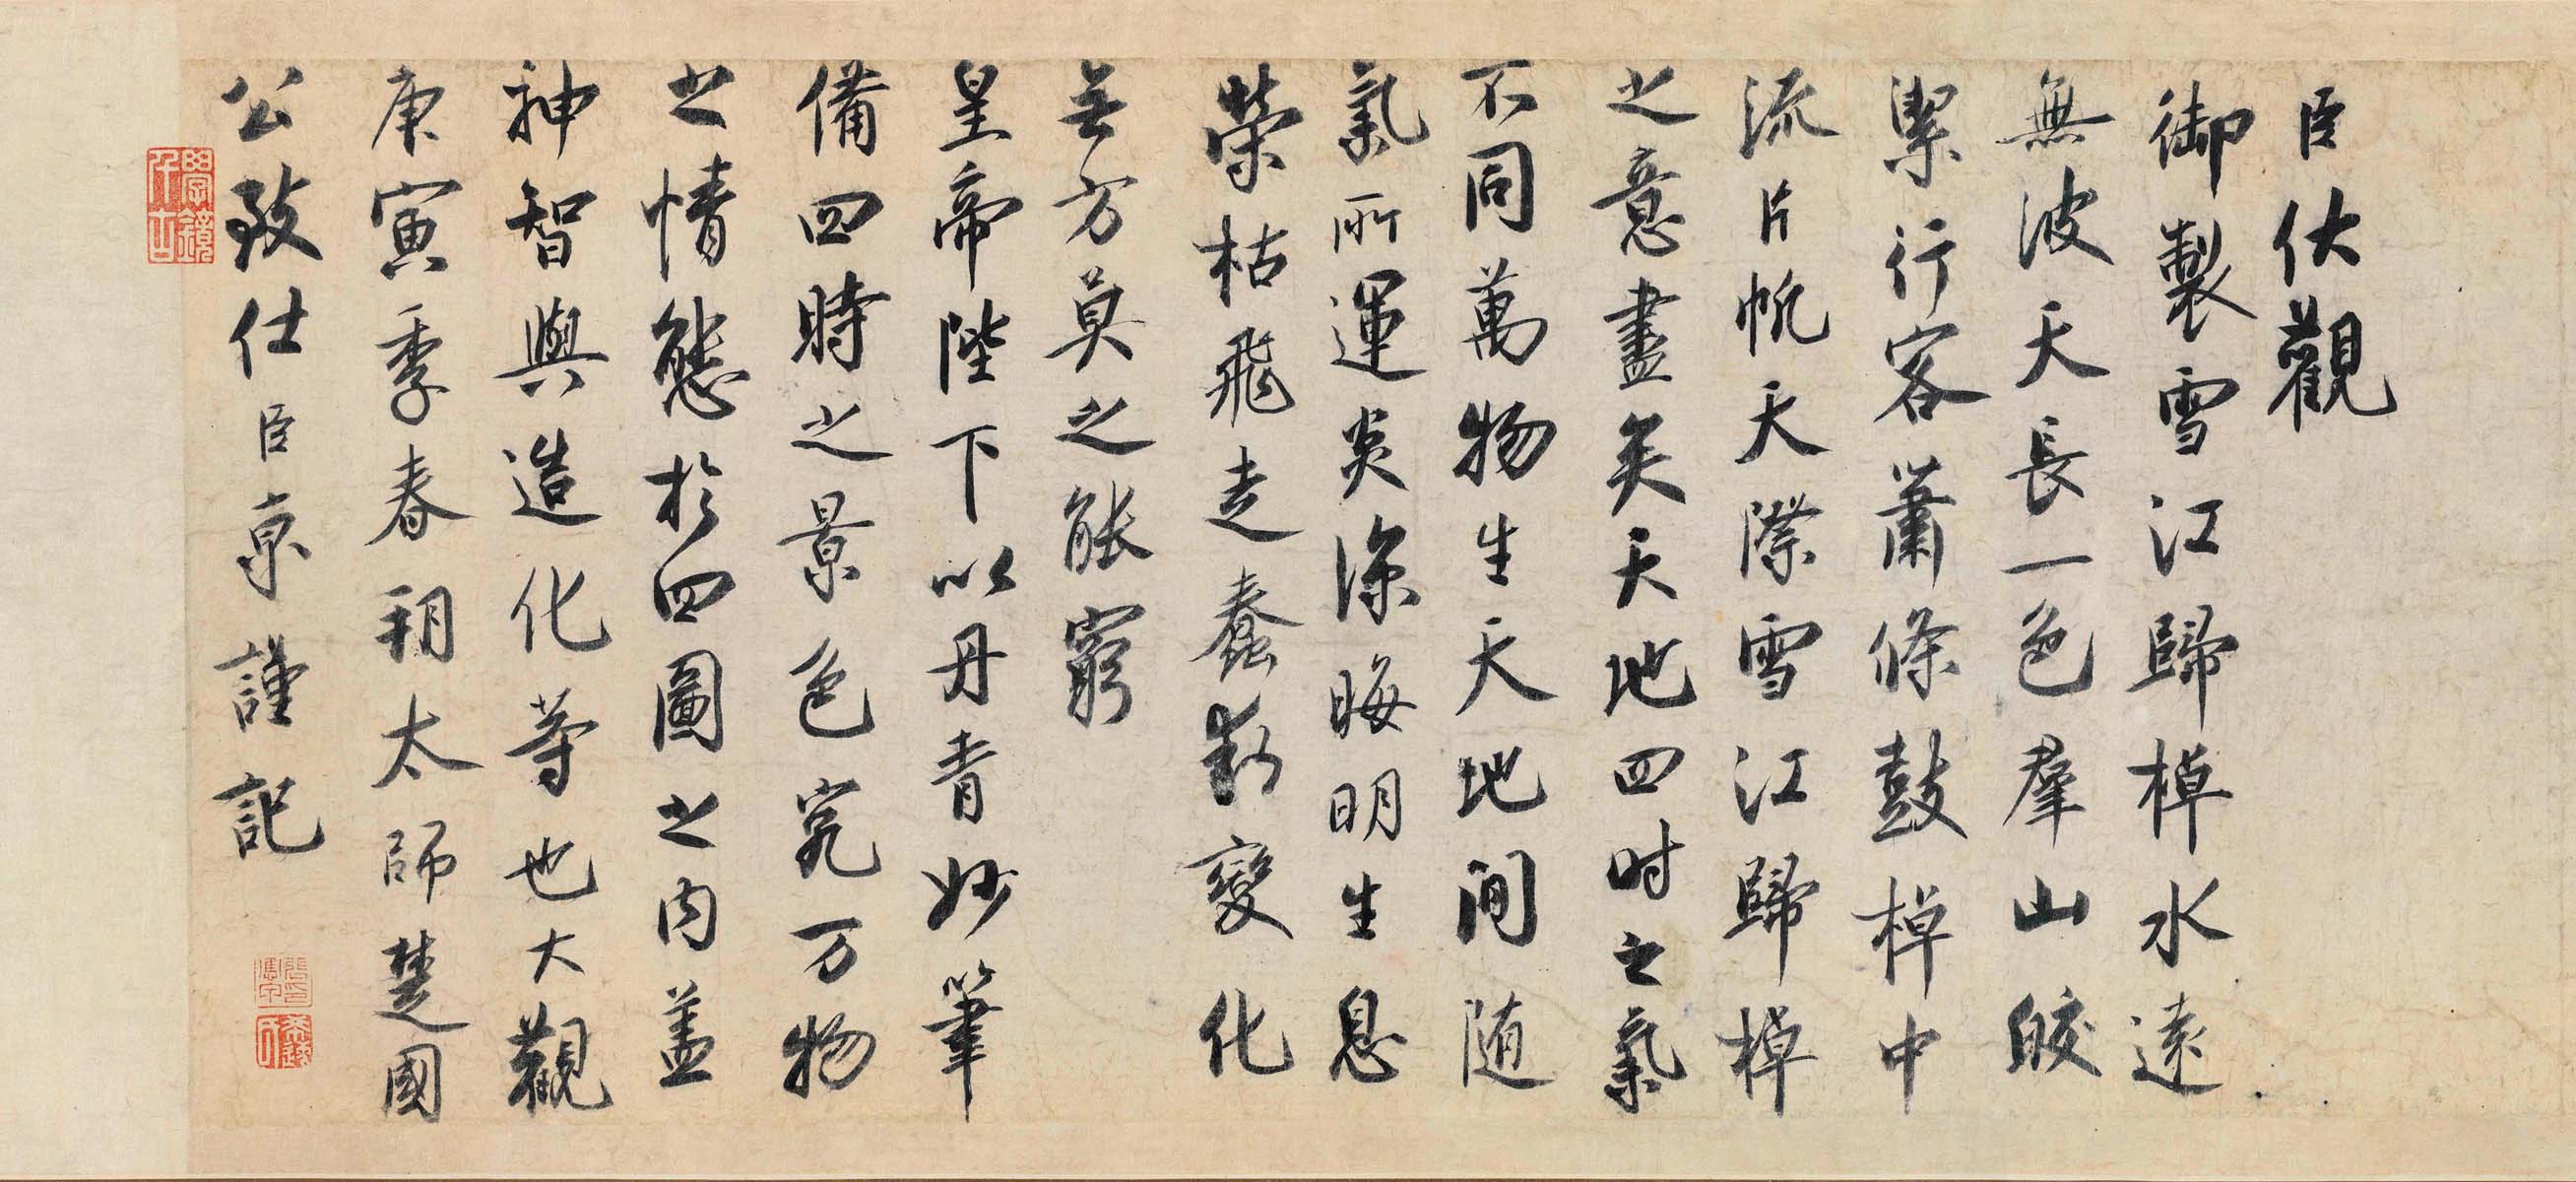 臣伏觀
御製雪江歸棹水遠
無波天長一色羣山皎
潔行客蕭條鼓棹中
流片帆天際雪江歸棹
之意盡矣天地四時之氣
不同萬物生天地間随
氣所運炎涼晦明生息
榮枯飛走蠢動變化
无方莫之能窮
皇帝陛下以丹青妙筆
備四時之景色究万物
之情態於四圖之内盖
神智與造化等也大觀
庚寅季春朔太師楚國
公致仕臣京謹記